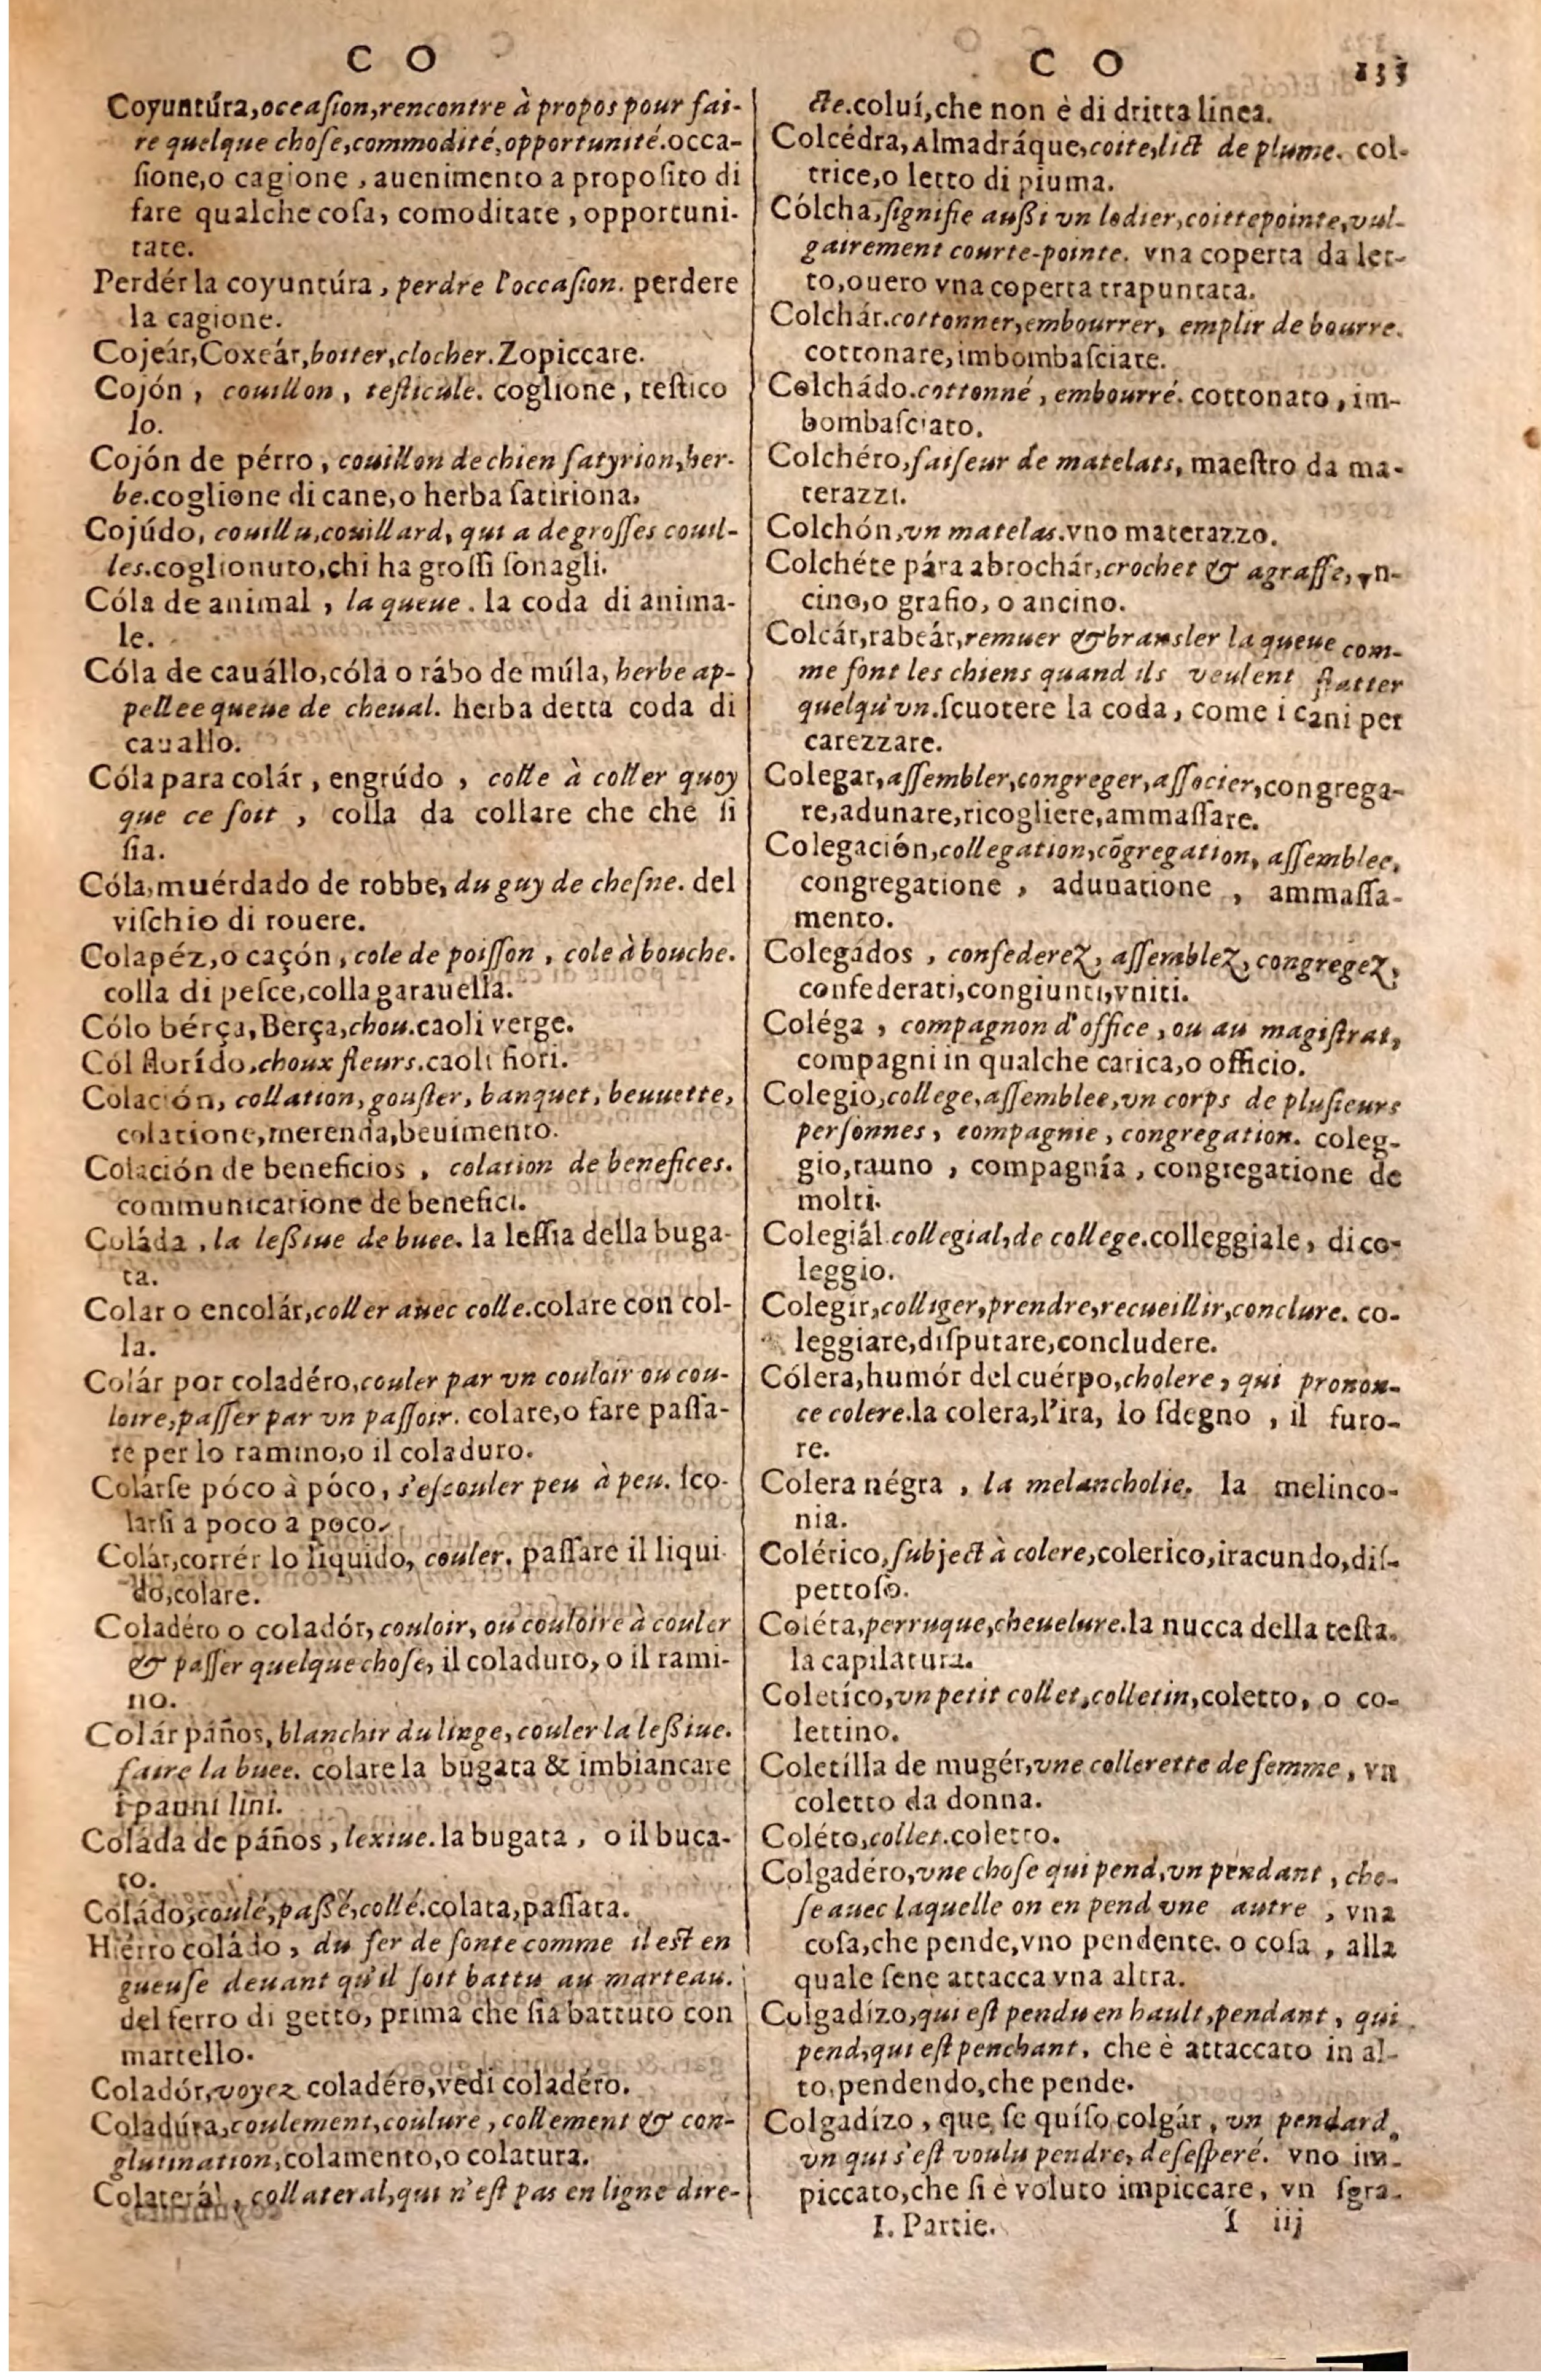 C O
Coyuntúra, occasion, rencontre à propos pour fai-
re quelque chose, commodité, opportunité. occa-
sione, o cagione, auenimento a proposito di
fare qualche cosa, comoditate, opportuni-
tate.
Perdér la coyuntúra, perdre l'occasion. perdere
la cagione.
Cojeár, Coxeár, boiter, clocher. Zopiccare.
Cojón, couillon, testicule. coglione, testico
lo.
Cojón de pérro, couillon de chien satyrion, her-
be. coglione di cane, o herba satiriona.
Cojúdo, couillu, couillard, qui a de grosses couil-
les. coglionuto, chi ha grossi sonagli.
Cóla de animal, la queue. la coda di anima-
le.
Cóla de cauállo, cóla o rábo de múla, herbe ap-
pellee queue de cheual. herba detta coda di
cauallo.
Cóla para colár, engrúdo, colle à coller quoy
que ce soit, colla da collare che che si
sia.
Cóla, muérdado de robbe, du guy de chesne. del
vischio di rouere.
Colapéz, o caçón, cole de poisson, cole à bouche.
colla di pesce, colla garauella.
Cólo bérça, Berça, chou. caoli verge.
Cól florído, choux fleurs. caoli fiori.
Colación, collation, gouster, banquet, beuuette,
colatione, merenda, beuimento.
Colación de beneficios, colation de benefices.
communicatione de benefici.
Coláda, la leßiue de buee. la lessia della buga-
ta.
Colar o encolár, coller auec colle. colare con col-
la.
Colár por coladéro, couler par vn couloir ou cou-
loire, passer par vn passoir. colare, o fare passa-
re per lo ramino, o il coladuro.
Colárse póco à póco, s'escouler peu à peu. sco-
larsi a poco a poco.
Colár, corrér lo liquido, couler. passare il liqui
do, colare.
Coladéro o coladór, couloir, ou couloire à couler
& passer quelque chose, il coladuro, o il rami-
no.
Colár páños, blanchir du linge, couler la leßiue.
faire la buee. colare la bugata & imbiancare
i panni lini.
Coláda de páños, lexiue. la bugata, o il buca-
to.
Coládo, coulé, paßé, collé. colata, passata.
Hiérro coládo, du fer de fonte comme il est en
gueuse deuant qu'il soit battu au marteau.
del ferro di getto, prima che sia battuto con
martello.
Coladór, voyez coladéro, vedi coladéro.
Coladúra, coulement, coulure, collement & con-
glutination, colamento, o colatura.
Colaterál, collateral, qui n'est pas en ligne dire-
C O 133
cte. coluí, che non è di dritta linea.
Colcédra, Almadráque, coite, lict de plume. col-
trice, o letto di piuma.
Cólcha, signifie außi vn lodier, coittepointe, vul-
gairement courte-pointe. vna coperta da let-
to, ouero vna coperta trapuntata.
Colchár. cottonner, embourrer, emplir de bourre.
cottonare, imbombasciare.
Colchádo. cottonné, embourré. cottonato, im-
bombasciato.
Colchéro, faiseur de matelats, maestro da ma-
terazzi.
Colchón, vn matelas. vno materazzo.
Colchéte pára abrochár, crochet & agraffe, vn-
cino, o grafio, o ancino.
Colcár, rabeár, remuer & bransler la queue com-
me font les chiens quand ils veulent flatter
quelqu'vn. scuotere la coda, come i cani per
carezzare.
Colegar, assembler, congreger, associer, congrega-
re, adunare, ricogliere, ammassare.
Colegación, collegation, cõgregation, assemblee,
congregatione, adunatione, ammassa-
mento.
Colegádos, confederez, assemblez, congregez,
confederati, congiunti, vniti.
Coléga, compagnon d'office, ou au magistrat,
compagni in qualche carica, o officio.
Colegio, college, assemblee, vn corps de plusieurs
personnes, compagnie, congregation. coleg-
gio, rauno, compagnía, congregatione de
molti.
Colegiál. collegial, de college. colleggiale, di co-
leggio.
Colegir, colliger, prendre, recueillir, conclure. co-
leggiare, disputare, concludere.
Cólera, humór del cuérpo, cholere, qui pronon-
ce colere. la colera, l'ira, lo sdegno, il furo-
re.
Colera négra, la melancholie. la melinco-
nia.
Colérico, subject à colere, colerico, iracundo, dis-
pettoso.
Coléta, perruque, cheuelure. la nucca della testa.
la capilatura.
Coletíco, vn petit collet, colletin, coletto, o co-
lettino.
Coletílla de mugér, vne collerette de femme, vn
coletto da donna.
Coléto, collet. coletto.
Colgadéro, vne chose qui pend, vn pendant, cho-
se auec laquelle on en pend vne autre, vna
cosa, che pende, vno pendente. o cosa, alla
quale sene attacca vna altra.
Colgadízo, qui est pendu en hault, pendant, qui
pend, qui est penchant. che è attaccato in al-
to, pendendo, che pende.
Colgadízo, que se quíso colgár, vn pendard,
vn qui s'est voulu pendre, desesperé. vno im-
piccato, che si è voluto impiccare, vn sgra-
I. Partie. I iij